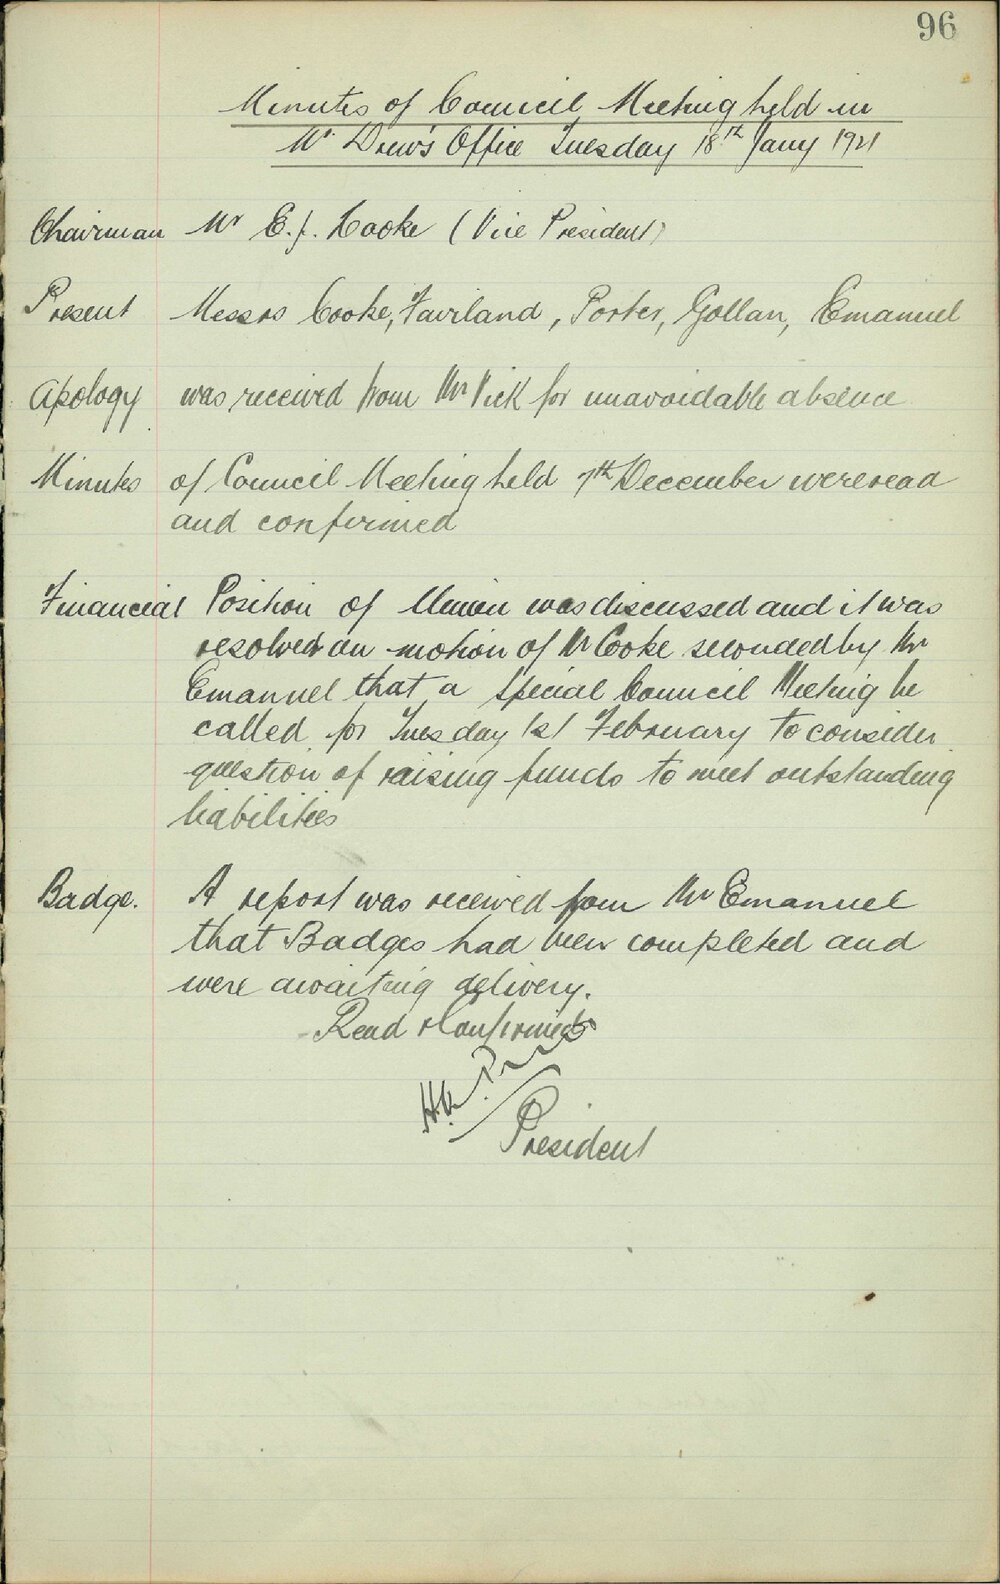 96
Minutes of Council Meeting held in
Mr Drew's Office Tuesday 18th Jany 1921
Chairman Mr E. J. Cooke (Vice President)
Present Messrs Cooke, Fairland, Porter, Gollan, Emanuel
Apology was received from Mr Vick for unavoidable absence
Minutes of Council Meeting held 7th December were read
and confirmed
Financial Position of Union was discussed and it was
resolved on motion of Mr Cooke seconded by Mr
Emanuel that a Special Council Meeting be
called for Tuesday 1st February to consider
question of raising funds to meet outstanding
liabilities
Badge. A report was received from Mr Emanuel
that Badges had been completed and
were awaiting delivery.
Read & Confirmed
President